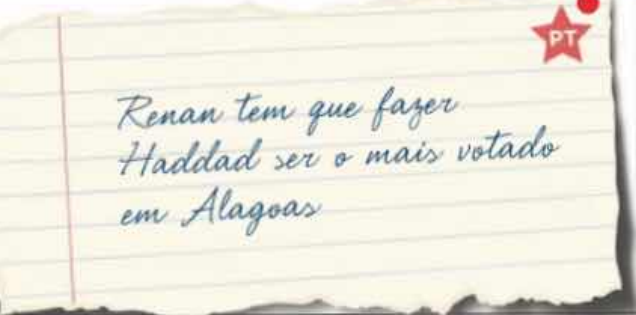 PT
Renan tem que fazer
Haddad ser o mais votado
em Alagoas